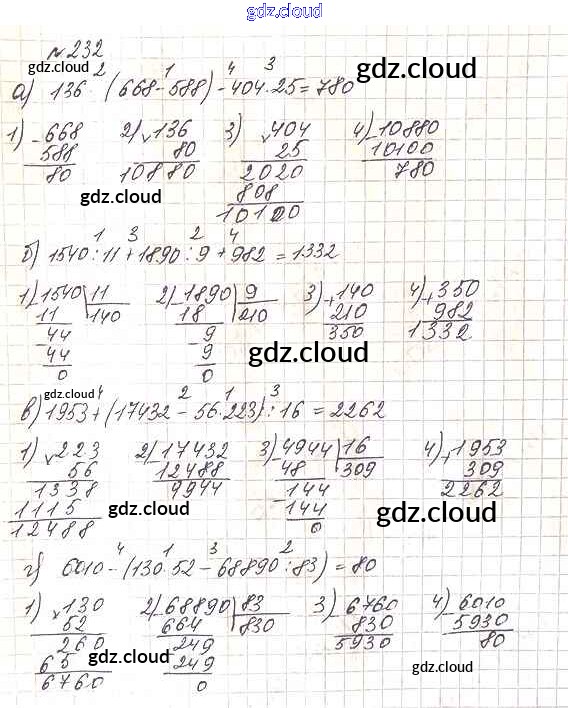 gdz.cloud
№232
gdz.cloud
2 1 4 3
а) 136 · (668-588) - 404·25 = 780
gdz.cloud
1) -668 2) ×136 3) ×404 4) -10880
588 80 25 10100
80 10880 2020 780
808
10100
gdz.cloud
1 3 2 4
б) 1540:11 + 1890:9 + 982 = 1332
1) -1540 | 11 2) -1890 | 9 3) +140 4) +350
11 140 18 210 210 982
-44 -9 350 1332
44 9
0 0
gdz.cloud
gdz.cloud
4 2 1 3
в) 1953 + (17432 - 56·223):16 = 2262
1) ×223 2) -17432 3) -4944 | 16 4) +1953
56 12488 48 309 309
1338 4944 -144 2262
1115 144
12488 0
gdz.cloud
gdz.cloud
4 1 3 2
г) 6010 - (130·52 - 68890:83) = 80
1) ×130 2) -68890 | 83 3) -6760 4) -6010
52 664 830 830 5930
260 -249 5930 80
65 249
6760 0
gdz.cloud
gdz.cloud